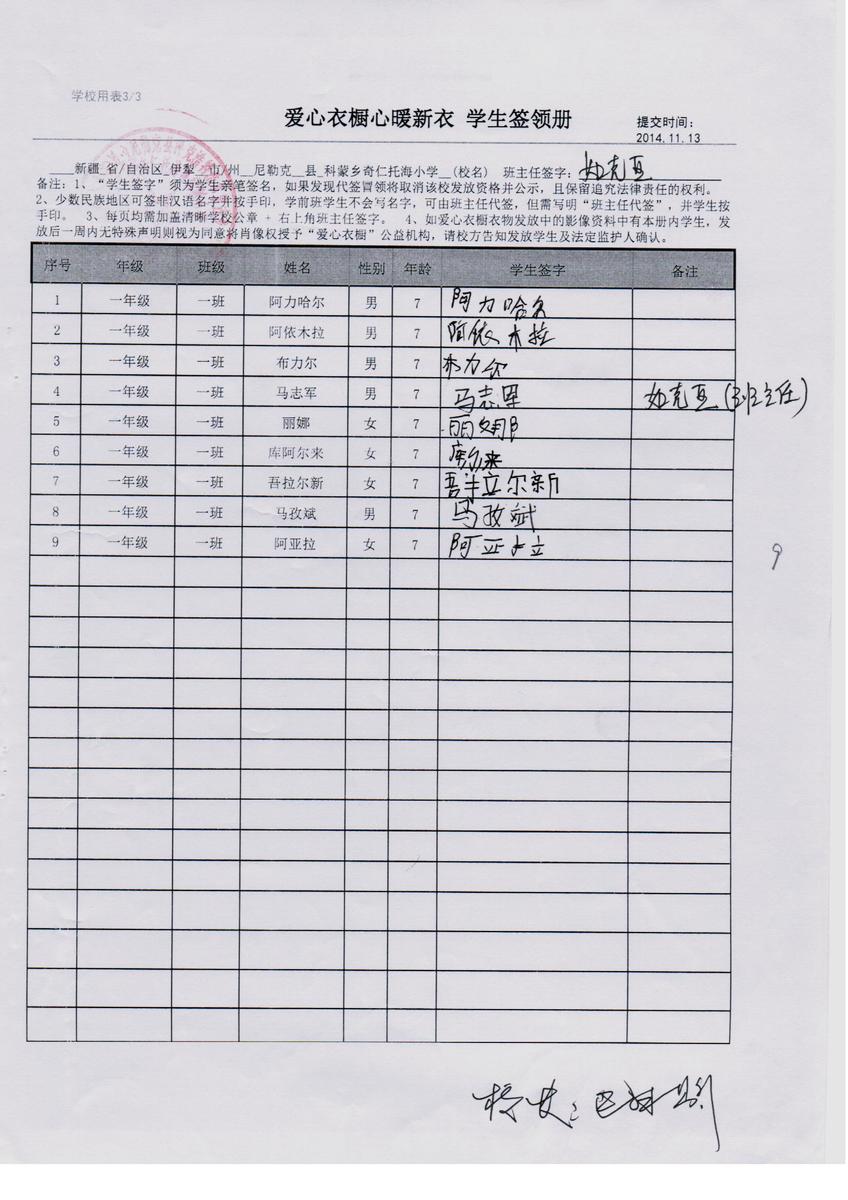 学校用表3/3
爱心衣橱心暖新衣 学生签领册 提交时间:
2014.11.13
新疆_省/自治区_伊犁__市/州__尼勒克__县_科蒙乡奇仁托海小学__(校名) 班主任签字:
备注:1、“学生签字”须为学生亲笔签名,如果发现代签冒领将取消该校发放资格并公示,且保留追究法律责任的权利。
2、少数民族地区可签非汉语名字并按手印,学前班学生不会写名字,可由班主任代签,但需写明“班主任代签”,并学生按
手印。 3、每页均需加盖清晰学校公章 + 右上角班主任签字。 4、如爱心衣橱衣物发放中的影像资料中有本册内学生,发
放后一周内无特殊声明则视为同意将肖像权授予“爱心衣橱”公益机构,请校方告知发放学生及法定监护人确认。
序号 年级 班级 姓名 性别 年龄 学生签字 备注
1 一年级 一班 阿力哈尔 男 7 阿力哈尔
2 一年级 一班 阿依木拉 男 7 阿依木拉
3 一年级 一班 布力尔 男 7 布力尔
4 一年级 一班 马志军 男 7 马志军 (班主任)
5 一年级 一班 丽娜 女 7 丽娜
6 一年级 一班 库阿尔来 女 7
7 一年级 一班 吾拉尔新 女 7 吾拉尔新
8 一年级 一班 马孜斌 男 7 马孜斌
9 一年级 一班 阿亚拉 女 7 阿亚拉
9